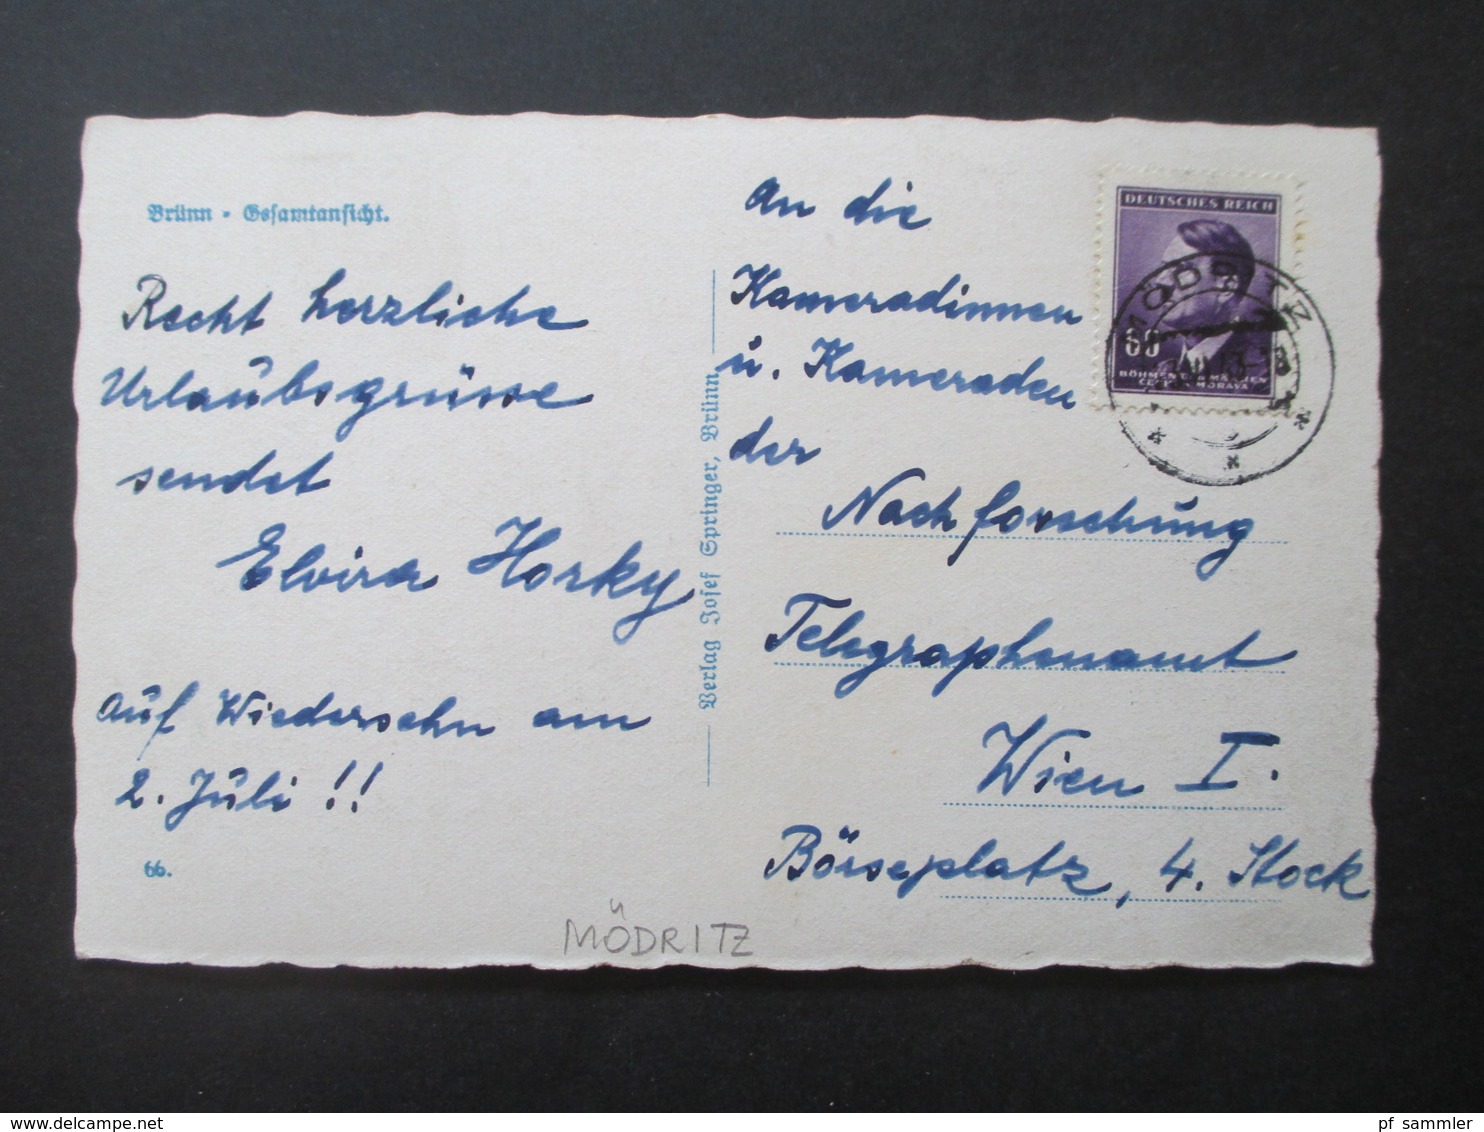 Brünn - Gesamtansicht.
Recht herzliche
Urlaubsgrüsse
sendet
Elvira Horky
Auf Wiedersehn am
2. Juli !!
66.
Verlag Josef Springer, Brünn
An die
Kameradinnen
u. Kameraden
der
Nachforschung
Telegraphenamt
Wien I.
Börseplatz, 4. Stock
DEUTSCHES REICH
60
MÖDRITZ
MÖDRITZ
www.delcampe.net
pf_sammler